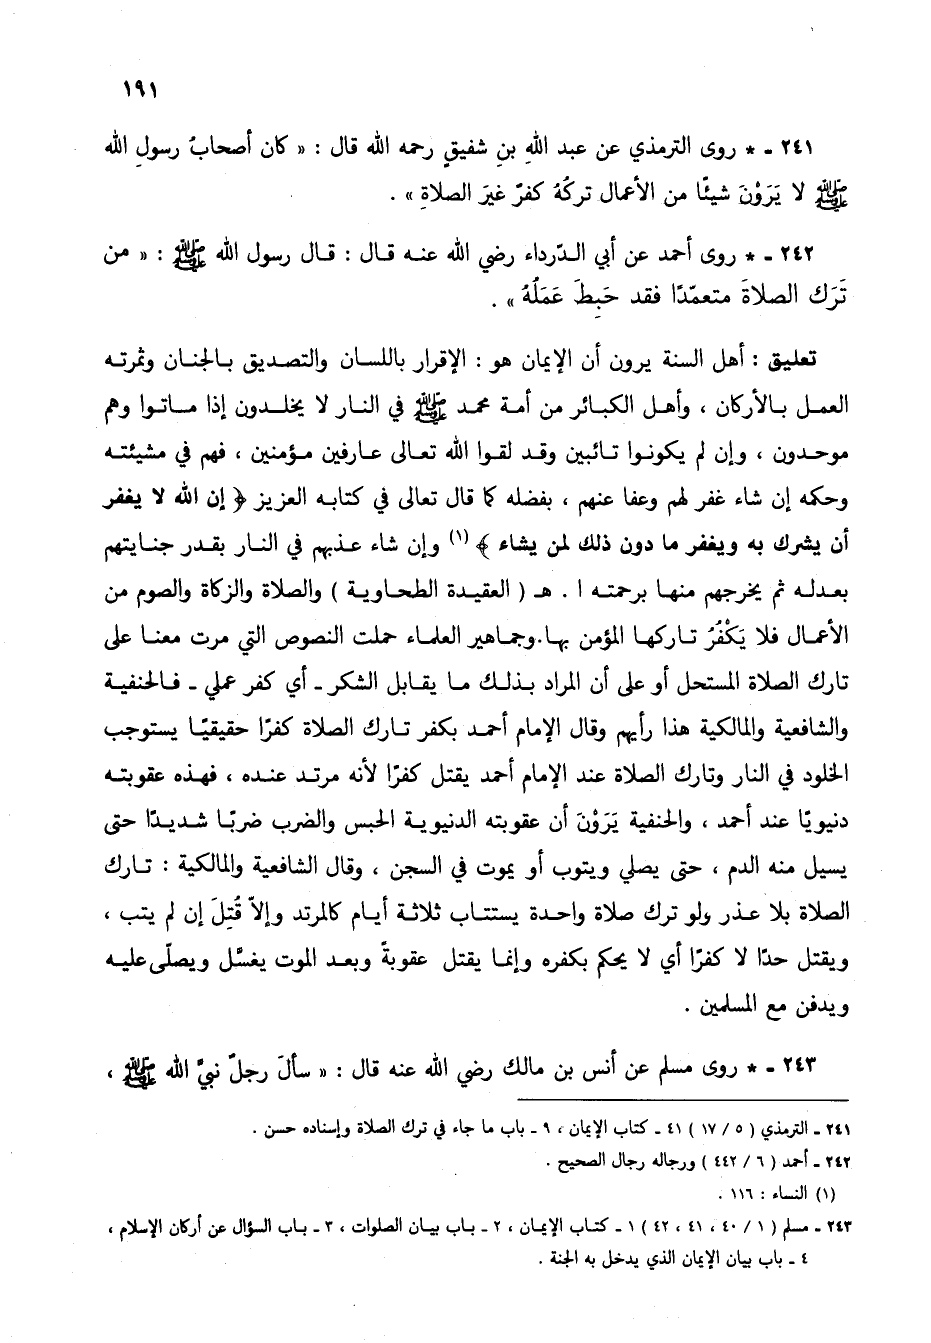 ١٩١
٢٤١ ـ * روى الترمذي عن عبد اللهِ بنِ شفيقٍ رحمه الله قال : « كان أصحابُ رسولِ الله
ﷺ لا يَرَوْنَ شيئًا من الأعمال تركُهُ كفرٌ غيرَ الصلاةِ » .
٢٤٢ ـ * روى أحمد عن أبي الدّرداء رضي الله عنه قال : قال رسول الله ﷺ : « من
تَرَك الصلاةَ متعمّدًا فقد حَبِطَ عَمَلُهُ » .
تعليق : أهل السنة يرون أن الإيمان هو : الإقرار باللسان والتصديق بالجنان وثمرته
العمل بالأركان ، وأهل الكبائر من أمة محمد ﷺ في النار لا يخلدون إذا ماتوا وهم
موحدون ، وإن لم يكونوا تائبين وقد لقوا الله تعالى عارفين مؤمنين ، فهم في مشيئته
وحكمه إن شاء غفر لهم وعفا عنهم ، بفضله كما قال تعالى في كتابه العزيز ﴿ إن الله لا يغفر
أن يشرك به ويغفر ما دون ذلك لمن يشاء ﴾ (١) وإن شاء عذبهم في النار بقدر جنايتهم
بعدله ثم يخرجهم منها برحمته ا . هـ ( العقيدة الطحاوية ) والصلاة والزكاة والصوم من
الأعمال فلا يَكْفُرُ تاركها المؤمن بها.وجماهير العلماء حملت النصوص التي مرت معنا على
تارك الصلاة المستحل أو على أن المراد بذلك ما يقابل الشكر ـ أي كفر عملي ـ فالحنفية
والشافعية والمالكية هذا رأيهم وقال الإمام أحمد بكفر تارك الصلاة كفرًا حقيقيًا يستوجب
الخلود في النار وتارك الصلاة عند الإمام أحمد يقتل كفرًا لأنه مرتد عنده ، فهذه عقوبته
دنيويًا عند أحمد ، والحنفية يَرَوْنَ أن عقوبته الدنيوية الحبس والضرب ضربًا شديدًا حتى
يسيل منه الدم ، حتى يصلي ويتوب أو يموت في السجن ، وقال الشافعية والمالكية : تارك
الصلاة بلا عذر ولو ترك صلاة واحدة يستتاب ثلاثة أيام كالمرتد وإلاّ قُتِلَ إن لم يتب ،
ويقتل حدًا لا كفرًا أي لا يحكم بكفره وإنما يقتل عقوبةً وبعد الموت يغسَّل ويصلّى عليه
ويدفن مع المسلمين .
٢٤٣ ـ * روى مسلم عن أنس بن مالك رضي الله عنه قال : « سألَ رجلٌ نبيَّ الله ﷺ ،
٢٤١ ـ الترمذي ( ٥ / ١٧ ) ٤١ ـ كتاب الإيمان ، ٩ ـ باب ما جاء في ترك الصلاة وإسناده حسن .
٢٤٢ ـ أحمد ( ٦ / ٤٤٢ ) ورجاله رجال الصحيح .
(١) النساء : ١١٦ .
٢٤٣ ـ مسلم ( ١ / ٤٠ ، ٤١ ، ٤٢ ) ١ ـ كتاب الإيمان ، ٢ ـ باب بيان الصلوات ، ٣ ـ باب السؤال عن أركان الإسلام ،
٤ ـ باب بيان الإيمان الذي يدخل به الجنة .